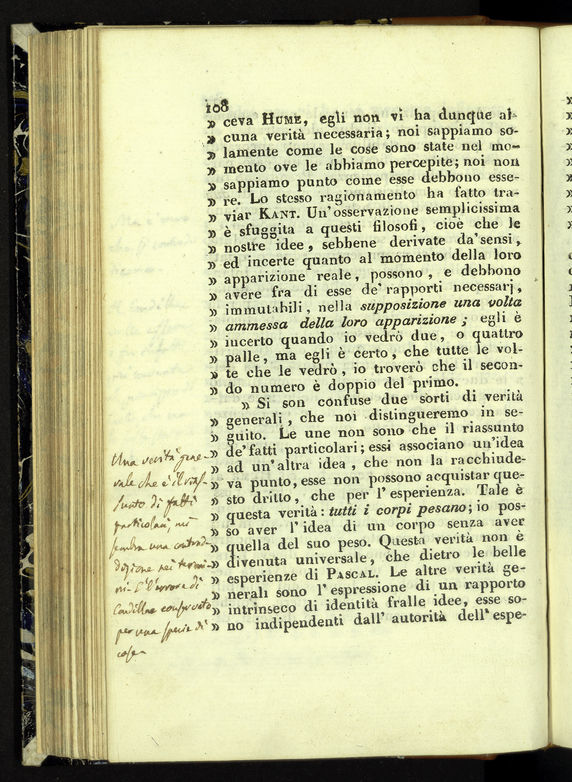 108
» ceva HUME, egli non vi ha dunque al-
» cuna verità necessaria; noi sappiamo so-
» lamente come le cose sono state nel mo-
» mento ove le abbiamo percepite; noi non
» sappiamo punto come esse debbono esse-
» re. Lo stesso ragionamento ha fatto tra-
» viar KANT. Un'osservazione semplicissima
» è sfuggita a questi filosofi, cioè che le
» nostre idee, sebbene derivate da'sensi,
» ed incerte quanto al momento della loro
» apparizione reale, possono, e debbono
» avere fra di esse de'rapporti necessarj,
» immutabili, nella supposizione una volta
» ammessa della loro apparizione; egli è
» incerto quando io vedrò due, o quattro
» palle, ma egli è certo, che tutte le vol-
» te che le vedrò, io troverò che il secon-
» do numero è doppio del primo.
» Si son confuse due sorti di verità
» generali, che noi distingueremo in se-
» guito. Le une non sono che il riassunto
» de'fatti particolari; essi associano un'idea
» ad un'altra idea, che non la racchiude-
» va punto, esse non possono acquistar que-
» sto dritto, che per l'esperienza. Tale è
» questa verità: tutti i corpi pesano; io pos-
» so aver l'idea di un corpo senza aver
» quella del suo peso. Questa verità non è
» divenuta universale, che dietro le belle
» esperienze di PASCAL. Le altre verità ge-
» nerali sono l'espressione di un rapporto
» intrinseco di identità fralle idee, esse so-
» no indipendenti dall'autorità dell'espe-
Una verità gene-
rale che è il rias-
sunto di fatti
particolari, mi
sembra una contrad-
dizione nei termi-
ni. È l'errore di
Condillac
per una specie di
cose